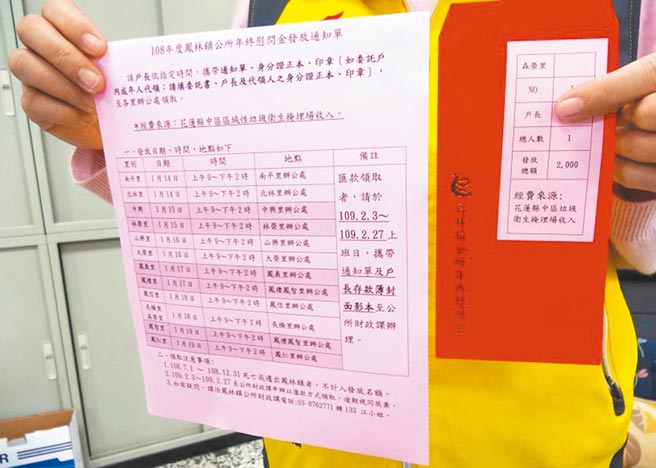 108年度鳳林鎮公所年終慰問金發放通知單
請戶長依指定時間，攜帶通知單、身分證正本、印章［如委託戶
內成年人代領：請填委託書、戶長及代領人之身分證正本、印章］，
至各里辦公處領取。
＊經費來源：花蓮縣中區區域性垃圾衛生掩埋場收入。
一、發放日期、時間、地點如下
里別 日期 時間 地點 備註
南平里 1月14日 上午9～下午2時 南平里辦公處
北林里 1月14日 上午9～下午2時 北林里辦公處
中興 1月15日 上午9～下午2時 中興里辦公處
林榮里 1月15日 上午9～下午2時 林榮里辦公處
山興里 1月16日 上午9～下午2時 山興里辦公處
大榮里 1月16日 上午9～下午2時 大榮里辦公處
鳳義里 1月17日 上午9～下午2時 鳳義里辦公處
鳳禮里 1月17日 上午9～下午2時 鳳禮鳳智里辦公處
鳳信里 1月18日 上午9～下午2時 鳳信里辦公處
長橋里
森榮里 1月18日 上午9～下午2時 長橋里辦公處
鳳智里 1月19日 上午9～下午2時 鳳禮鳳智里辦公處
鳳仁里 1月19日 上午9～下午2時 鳳仁里辦公處
匯款領取
者，請於
109.2.3～
109.2.27上
班日，攜帶
通知單及戶
長存款簿封
面影本至公
所財政課辦
理。
二、領取注意事項：
1.108.7.1～108.12.31死亡或遷出鳳林鎮者，不計入發放名額。
2.109.2.3～109.2.27至公所財政課申辦以匯款方式領取，逾期視同放棄。
3.如有疑問，請洽鳳林鎮公所財政課電話:03-8762771轉133江小姐。
森榮里
NO 1
戶長
總人數 1
發放
總額 2,000
經費來源:
花蓮縣中區垃圾
衛生掩埋場收入